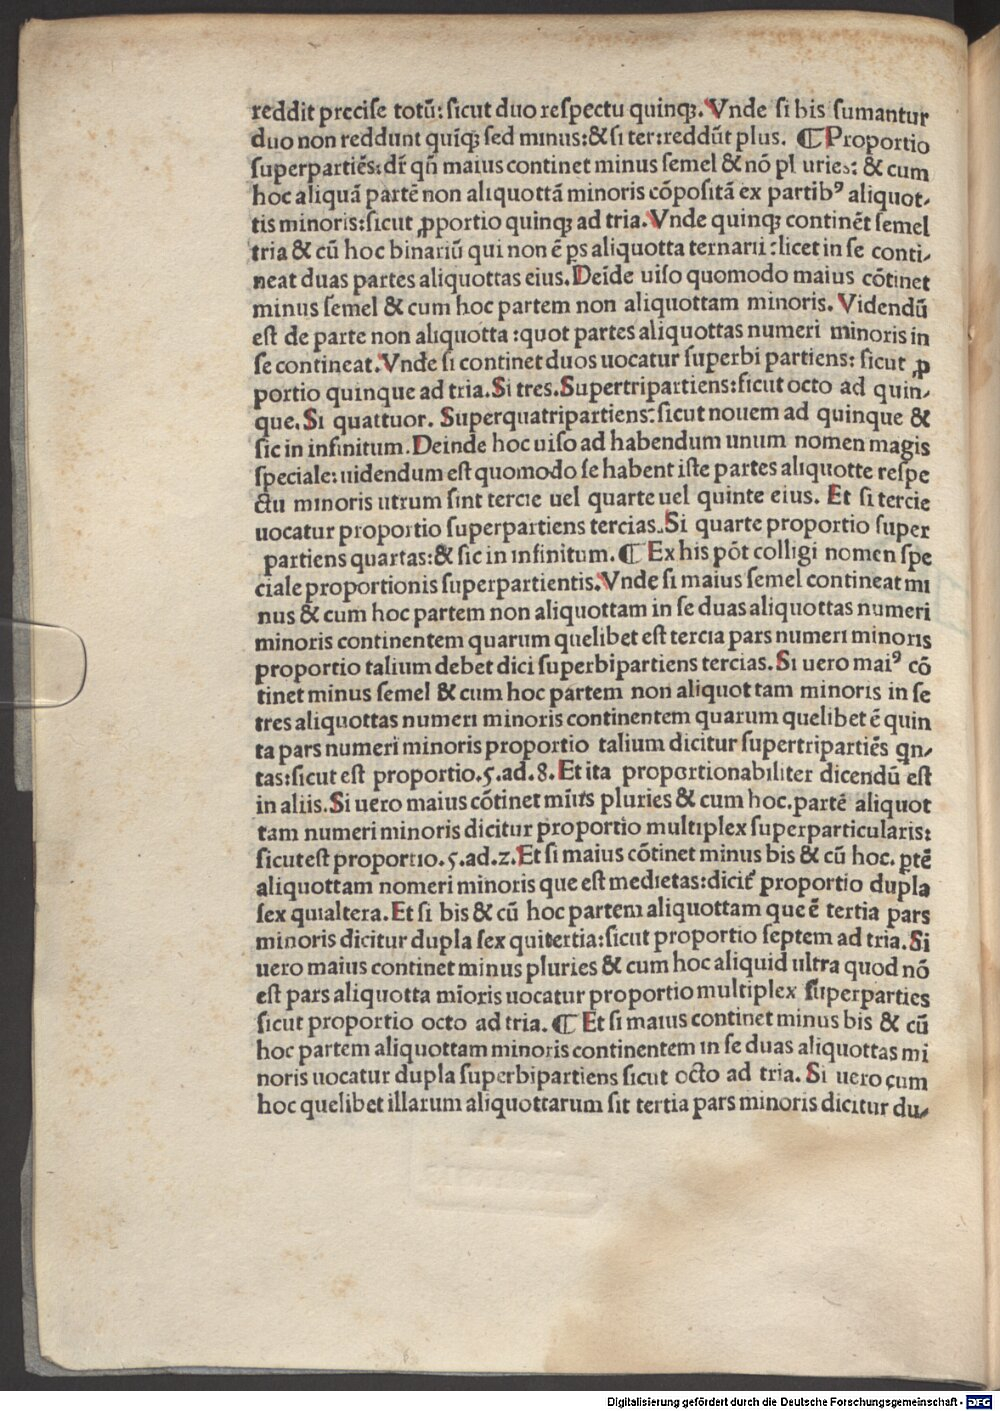 reddit precise totū: sicut duo respectu quinqꝫ. Vnde si bis sumantur
duo non reddunt quīqꝫ sed minus:& si ter:reddūt plus. ¶ Proportio
superpartiēs: dr̄ qn̄ maius continet minus semel & nō pluries: & cum
hoc aliquā partē non aliquottā minoris cōpositā ex partibꝰ aliquot⸗
tis minoris: sicut ꝓportio quinqꝫ ad tria. Vnde quinqꝫ continēt semel
tria & cū hoc binariū qui non ē ps aliquotta ternarii: licet in se conti⸗
neat duas partes aliquottas eius. Deīde uiso quomodo maius cōtinet
minus semel & cum hoc partem non aliquottam minoris. Videndū
est de parte non aliquotta: quot partes aliquottas numeri minoris in
se contineat. Vnde si continet duos uocatur superbi partiens: sicut ꝓ
portio quinque ad tria. Si tres. Supertripartiens: sicut octo ad quin⸗
que. Si quattuor. Superquatripartiens: sicut nouem ad quinque &
sic in infinitum. Deinde hoc uiso ad habendum unum nomen magis
speciale: uidendum est quomodo se habent iste partes aliquotte respe
ctu minoris utrum sint tercie uel quarte uel quinte eius. Et si tercie
uocatur proportio superpartiens tercias. Si quarte proportio super
partiens quartas: & sic in infinitum. ¶ Ex his pōt colligi nomen spe
ciale proportionis superpartientis. Vnde si maius semel contineat mi
nus & cum hoc partem non aliquottam in se duas aliquottas numeri
minoris continentem quarum quelibet est tercia pars numeri minoris
proportio talium debet dici superbipartiens tercias. Si uero maiꝰ cō
tinet minus semel & cum hoc partem non aliquot tam minoris in se
tres aliquottas numeri minoris continentem quarum quelibet ē quin
ta pars numeri minoris proportio talium dicitur supertripartiēs qn⸗
tas: sicut est proportio.5.ad.8. Et ita proportionabiliter dicendū est
in aliis. Si uero maius cōtinet min̄s pluries & cum hoc.partē aliquot
tam numeri minoris dicitur proportio multiplex superparticularis:
sicut est proportio.5.ad.2. Et si maius cōtinet minus bis & cū hoc. ꝑtē
aliquottam nomeri minoris que est medietas: dicit̄ proportio dupla
sex quialtera. Et si bis & cū hoc partem aliquottam que ē tertia pars
minoris dicitur dupla sex quitertia: sicut proportio septem ad tria. Si
uero maius continet minus pluries & cum hoc aliquid ultra quod nō
est pars aliquotta mīoris uocatur proportio multiplex superparties
sicut proportio octo ad tria. ¶ Et si maius continet minus bis & cū
hoc partem aliquottam minoris continentem in se duas aliquottas mi
noris uocatur dupla superbipartiens sicut octo ad tria. Si uero cum
hoc quelibet illarum aliquottarum sit tertia pars minoris dicitur du⸗
Digitalisierung gefördert durch die Deutsche Forschungsgemeinschaft - DFG